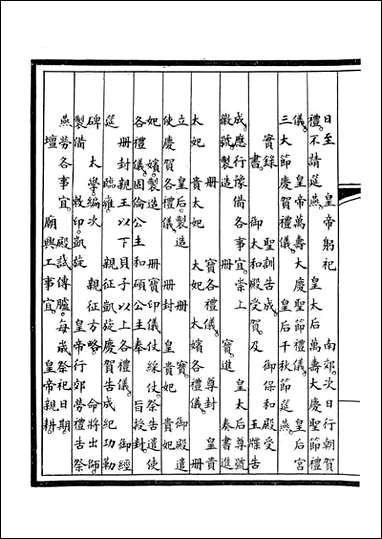 日至　皇帝躬祀　南郊次日行朝賀
禮不請筵燕　皇太后萬壽大慶聖節禮
儀　皇帝萬壽大慶聖節禮儀　皇后宮
三大節慶賀禮儀　皇后千秋節筵燕
實錄　聖訓告成　御保和殿受
書　御太和殿受賀及　玉牒告
成應行豫備各事宜崇上　皇太后尊號
徽號製造　寶進　奏書進
冊　寶各禮儀　尊封　皇貴
太妃　貴太妃　太妃太嬪各禮儀　冊
立　皇后製造　冊　寶　御殿遣
使慶賀各禮儀　冊封　皇貴妃　貴妃
妃　嬪製造　冊寶印儀仗綵仗祭告遣使
各禮儀固倫公主和碩公主奉　旨授封
冊封親王以下貝子以上各禮儀　御經
筵　臨雍　親征凱旋慶賀告成紀功勒
碑　太學編次　親征方略　命將出師
製備　敕印凱旋　皇帝行郊勞禮告祭
燕勞各事宜　殿試傳臚每歲祭祀日期
壇　廟興工事宜　皇帝親耕